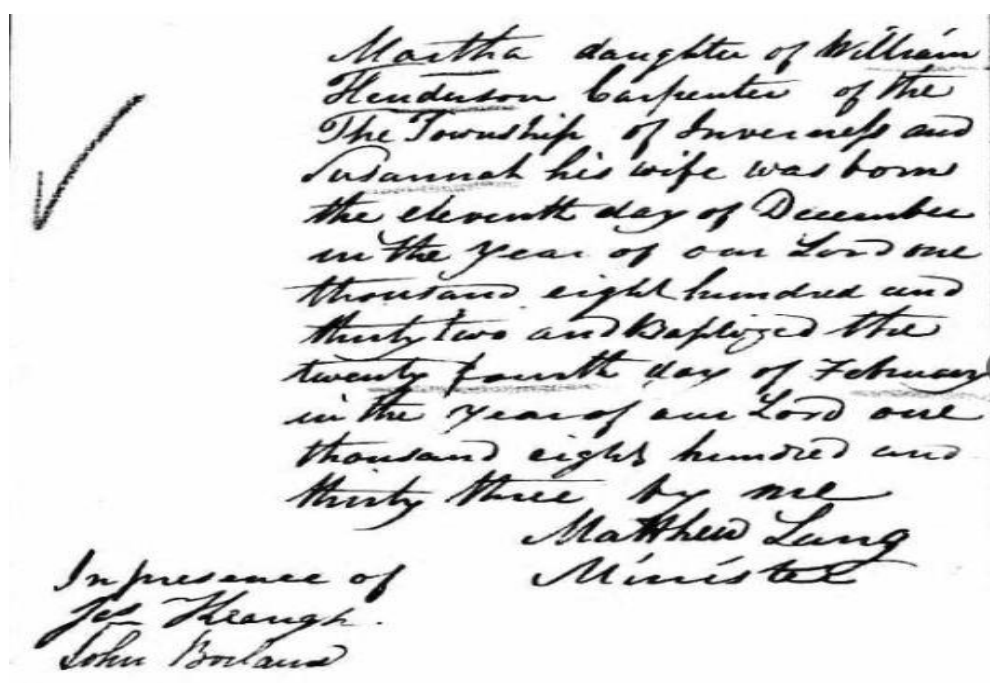 Martha daughter of William
Henderson Carpenter of the
The Township of Inverness and
Susannah his wife was born
the eleventh day of December
in the Year of our Lord one
thousand eight hundred and
thirty two and Baptized the
twenty fourth day of February
in the Year of our Lord one
thousand eight hundred and
thirty three by me
Matthew Lang
Minister
In presence of
Jas Keough.
John Borland